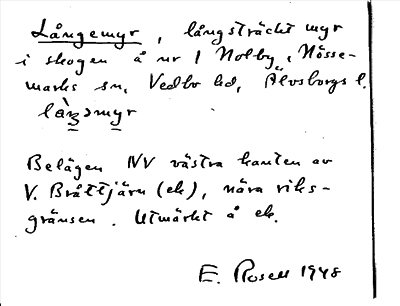 Långemyr, långsträckt myr
i skogen å nr 1 Holby, Nösse-
marks sn, Vedbo hd, Älvsborgs l.
Belägen NV västra kanten av
V. Bråttjärn (ek), nära riks-
gränsen. Utmärkt å ek.
E. Rosell 1948